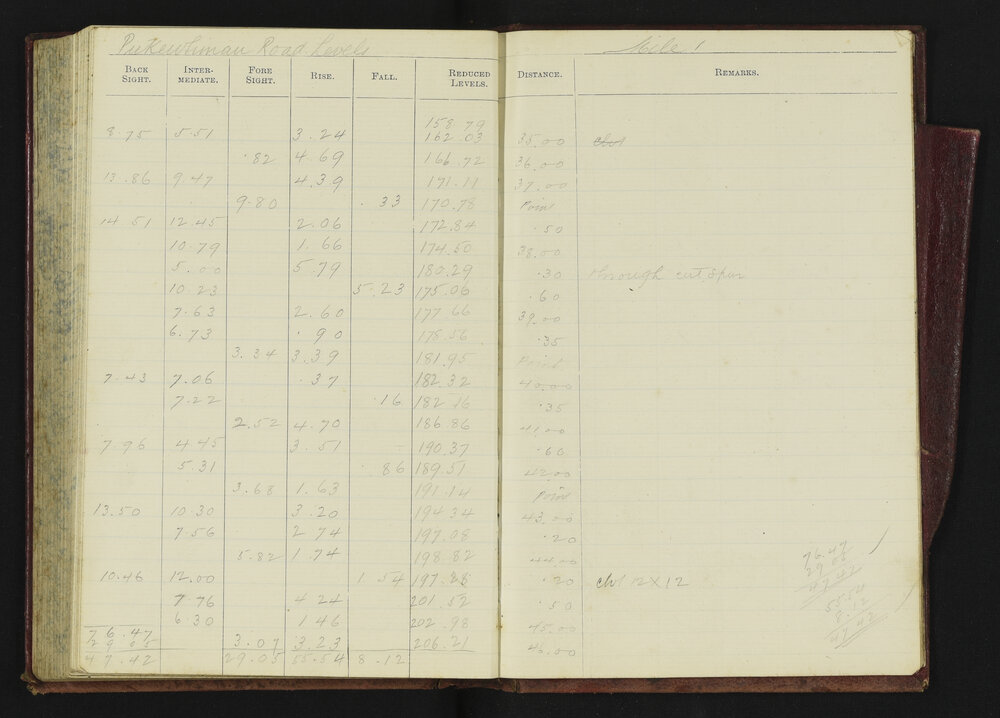 Road Levels Mile 1
BACK SIGHT. INTER-MEDIATE. FORE SIGHT. RISE. FALL. REDUCED LEVELS. DISTANCE. REMARKS.
158.79
8.75 5.51 3.24 162.03 35.00 clvt
.82 4.69 166.72 36.00
13.86 9.47 4.39 171.11 37.00
9.80 .33 170.78 Point
14.51 12.45 2.06 172.84 .50
10.79 1.66 174.50 38.00
5.00 5.79 180.29 .30 through cut Spur
10.23 5.23 175.06 .60
7.63 2.60 177.66 39.00
6.73 .90 178.56 .35
3.34 3.39 181.95 Point
7.43 7.06 .37 182.32 40.00
7.22 .16 182.16 .35
2.52 4.70 186.86 41.00
7.96 4.45 3.51 190.37 .60
5.31 .86 189.51 42.00
3.68 1.63 191.14 Point
13.50 10.30 3.20 194.34 43.00
7.56 2.74 197.08 .20
5.82 1.74 198.82 44.00
10.46 12.00 1.54 197.28 .20 clvt 12 X 12
7.76 4.24 201.52 .50
6.30 1.46 202.98 45.00
76.47 3.07 3.23 206.21 46.00
29.05
47.42 29.05 55.54 8.12
76.47
29.05
47.42
55.54
8.12
47.42